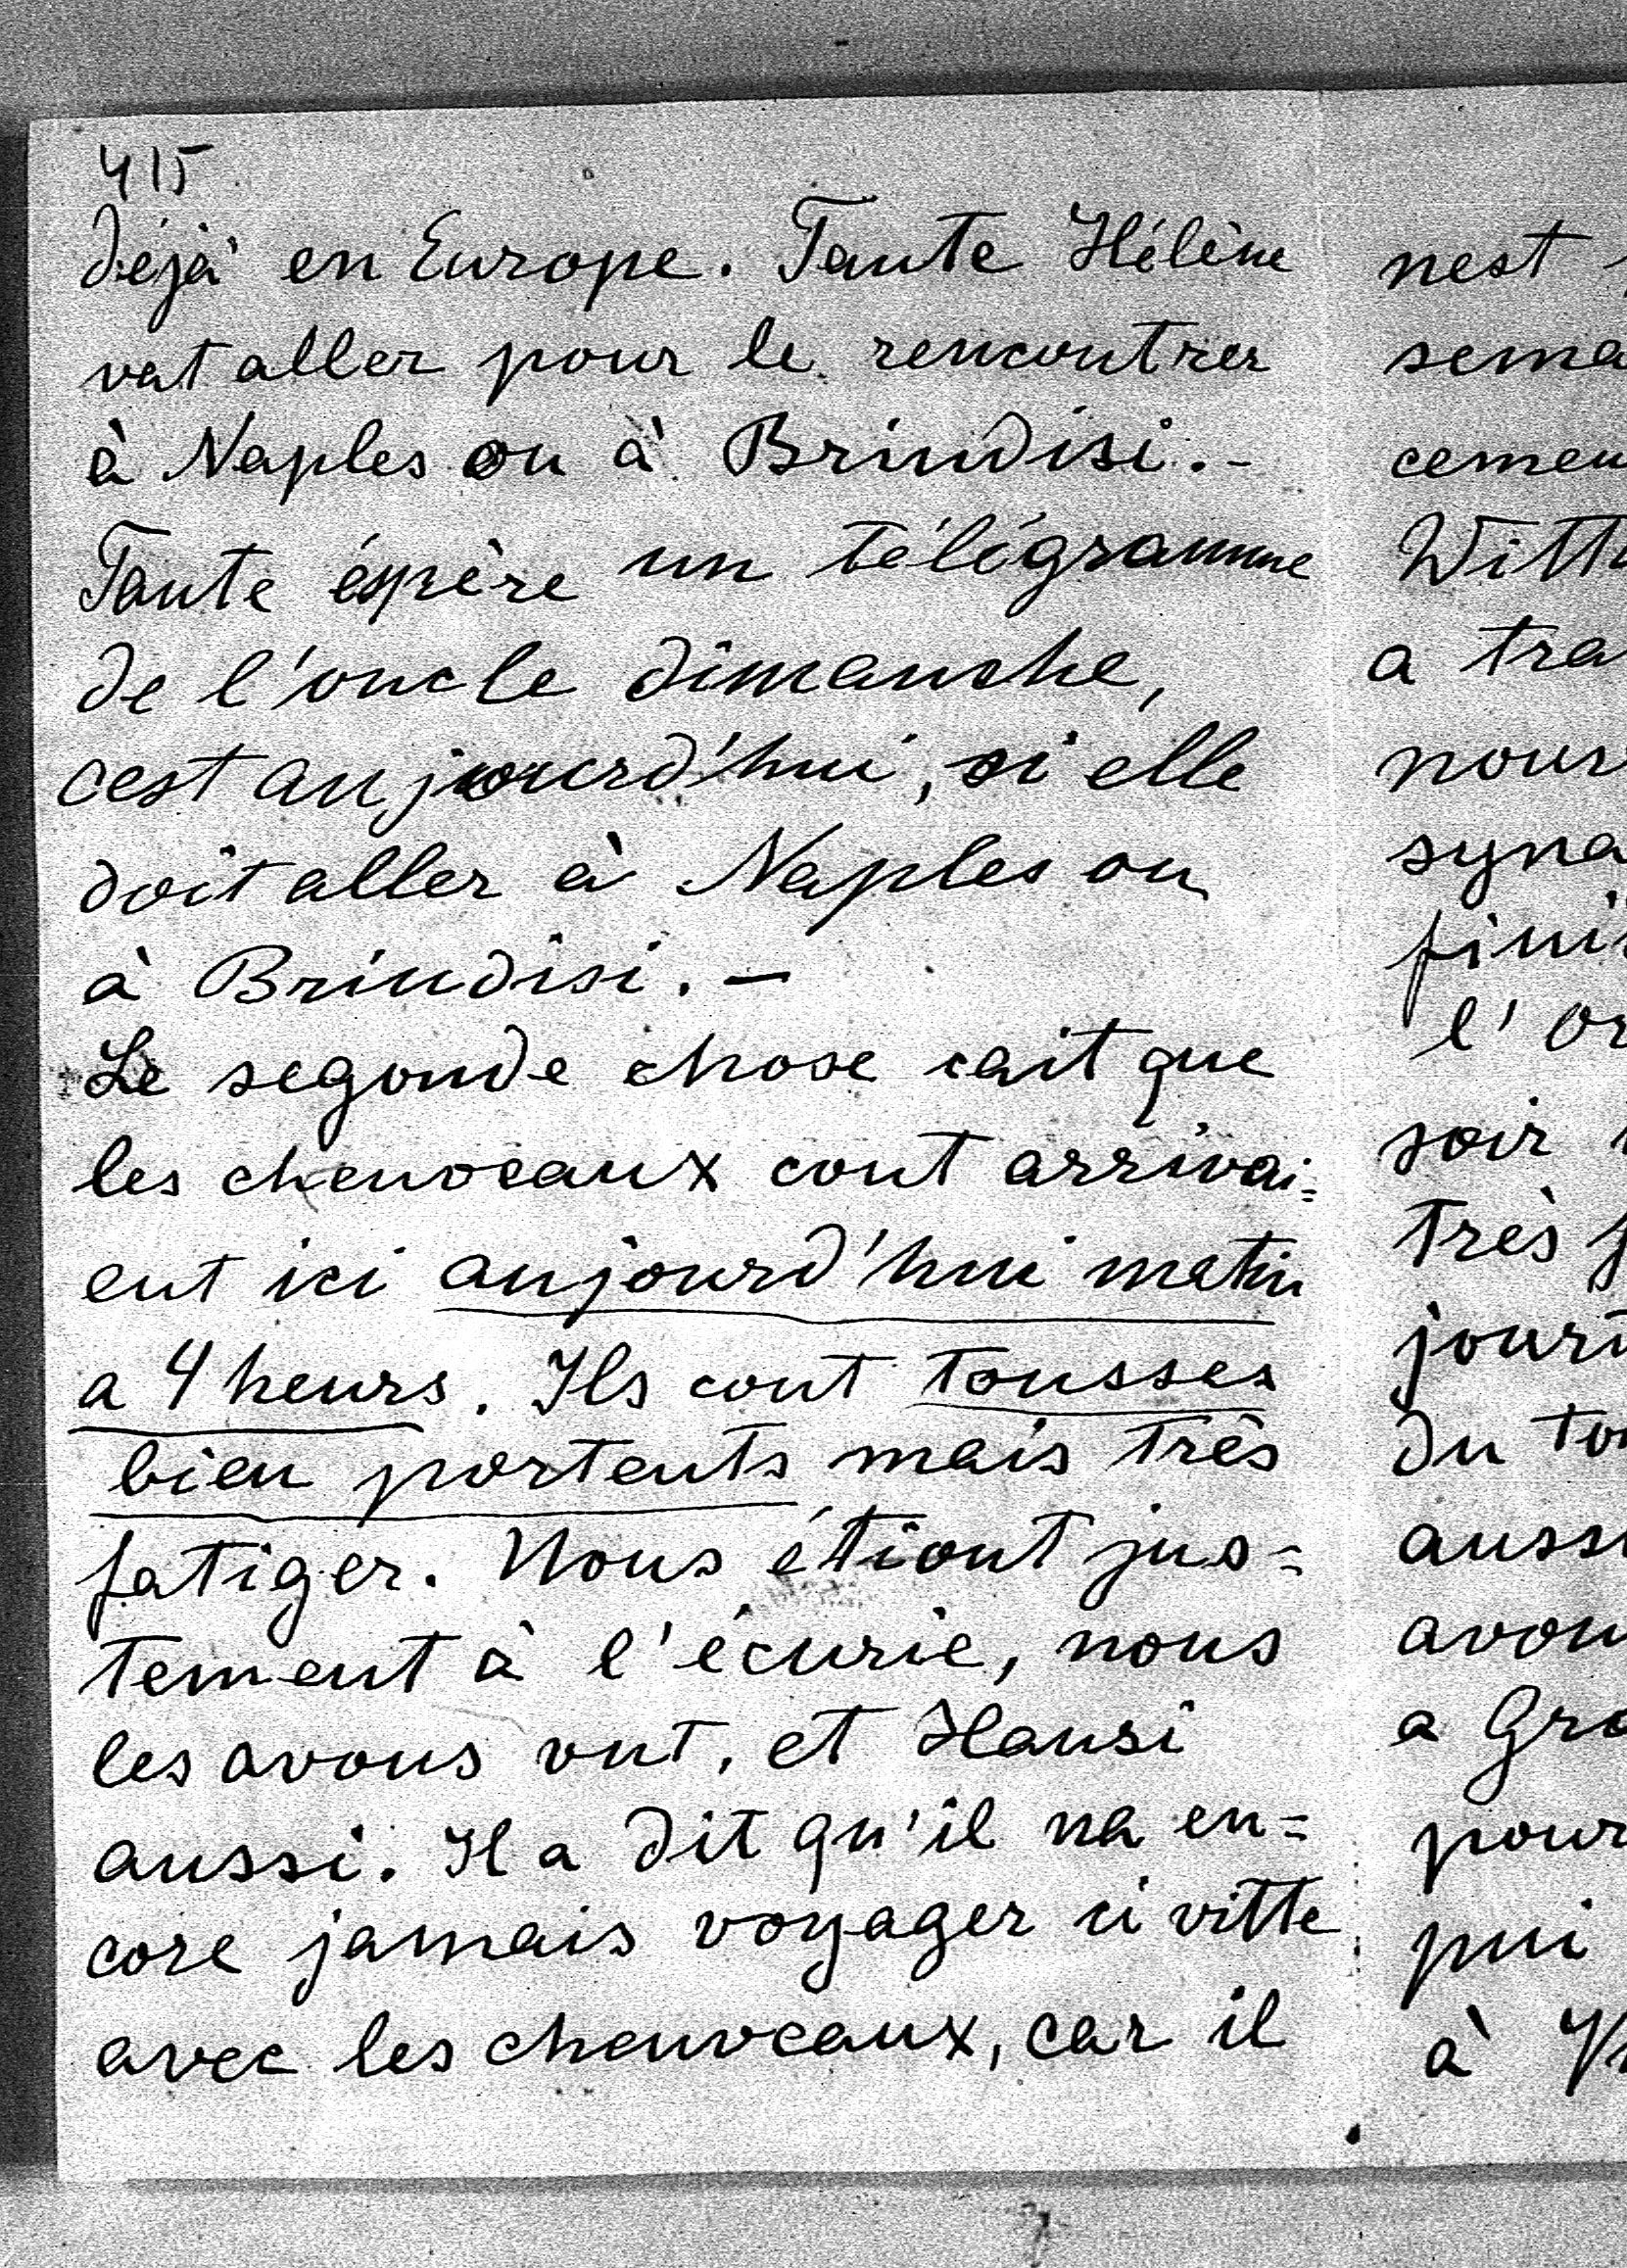 415
déjà en Europe. Tante Hélène
vat aller pour le rencontrer
à Naples ou à Brindisi.-
Tante éspère un télégramme
de l'oncle dimanche,
cest aujourd'hui, si elle
doit aller à Naples ou
à Brindisi. —
Le segonde chose cait que
les chenveaux cont arrivai=
ent ici aujourd'hui matin
a 4 heurs. Ils cont tousses
bien portents mais très
fatiger. Nous étiont jus=
tement à l'écurie, nous
les avons vut, et Hansi
aussi. Il a dit qu'il na en=
core jamais voyager ci vitte
avec les chenveaux, car il
nest
sema
cemen
Witt
a tra
nour
syna
fini
l'or
soir
très
jour
du to
aussi
avon
a Gro
pour
pui
à